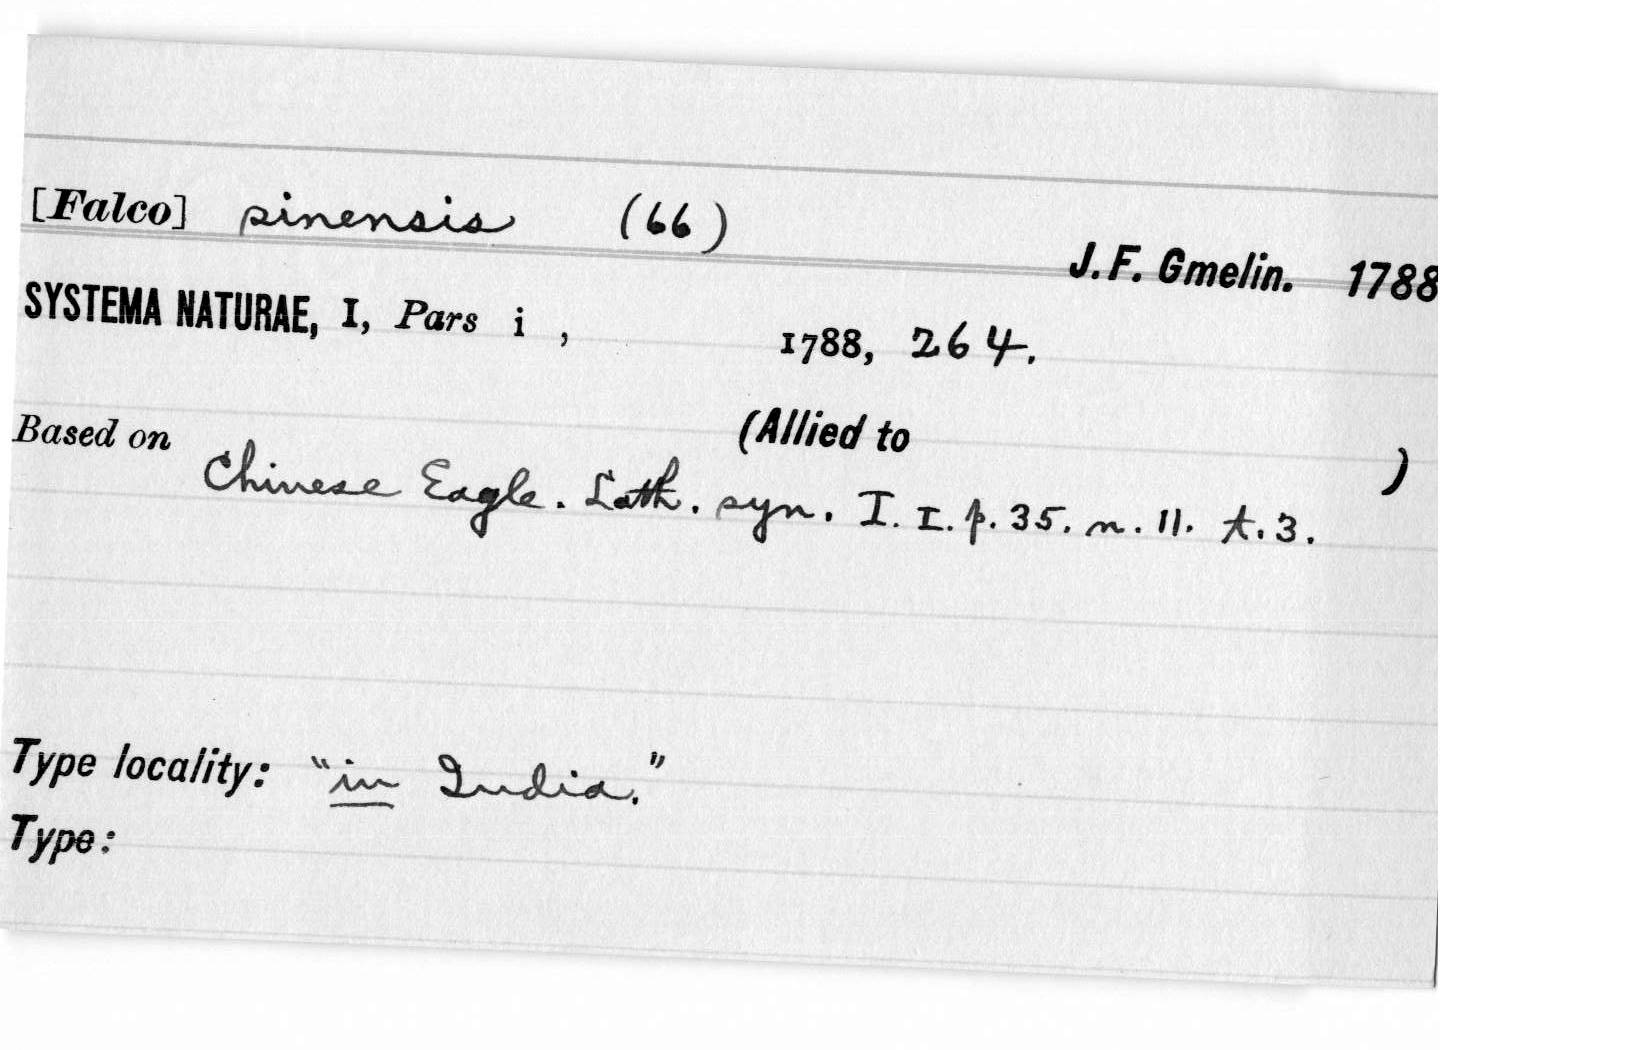 [Falco] sinensis (66)
J. F. Gmelin. 1788
SYSTEMA NATURAE, I, Pars i , 1788, 264.
Based on (Allied to )
Chinese Eagle. Lath. syn. I. I. p. 35. n. 11. t. 3.
Type locality: "in India."
Type: